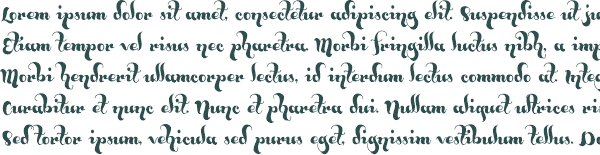 Lorem ipsum dolor sit amet, consectetur adipiscing elit. Suspendisse ut ju
Etiam tempor vel risus nec pharetra. Morbi fringilla luctus nibh, a imp
Morbi hendrerit ullamcorper lectus, id interdum lectus commodo at. Integ
Curabitur et nunc elit. Nunc et pharetra dui. Nullam aliquet ultrices ri
Sed tortor ipsum, vehicula sed purus eget, dignissim vestibulum tellus. Do